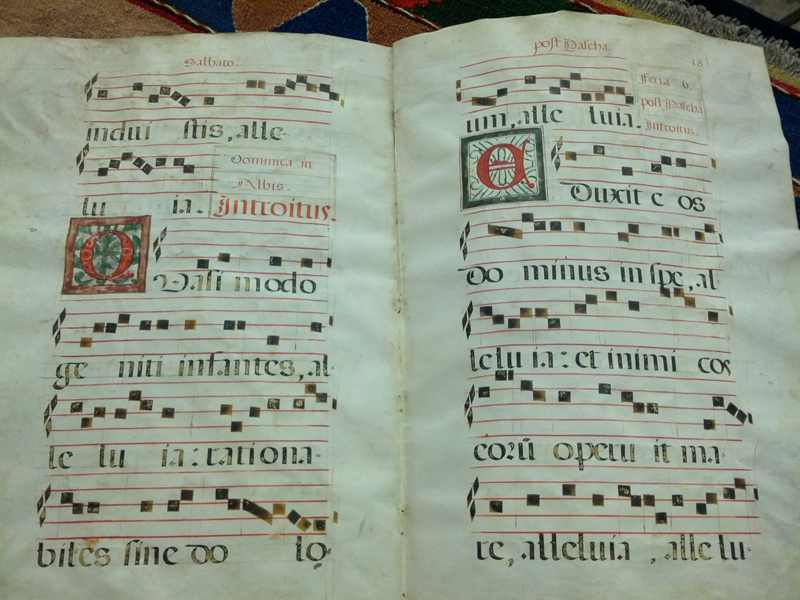 Sabbato.
indui stis, alle-
lu ia.
Dominica in
Albis.
Introitus.
Q
Vasi modo
ge niti infantes, al-
le lu ia: rationa-
biles sine do lo,
post Pascha.
18
um, alle luia.
Feria 6.
post Pascha
Introitus.
E
Duxit e os
Do minus in spe, al-
lelu ia: et inimi cos
eorū operu it ma-
re, alleluia, alle lu-